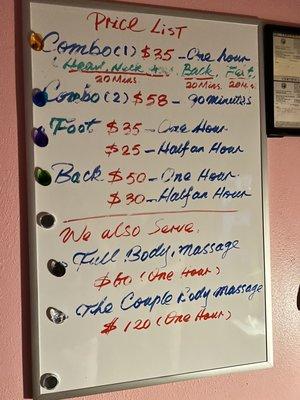 Price List
Combo(1) $35 - One hour
(Head, Neck, Back, Feet,
20 Mins. 20 Mins. 20 Mi
Combo (2) $58 - 90 minutes
Foot $35 - One Hour
$25 - Half an Hour
Back $50 - One Hour
$30 - Half an Hour
We also Serve.
Full Body, massage
$60 (One Hour)
The Couple Body massage
$120 (One Hour)